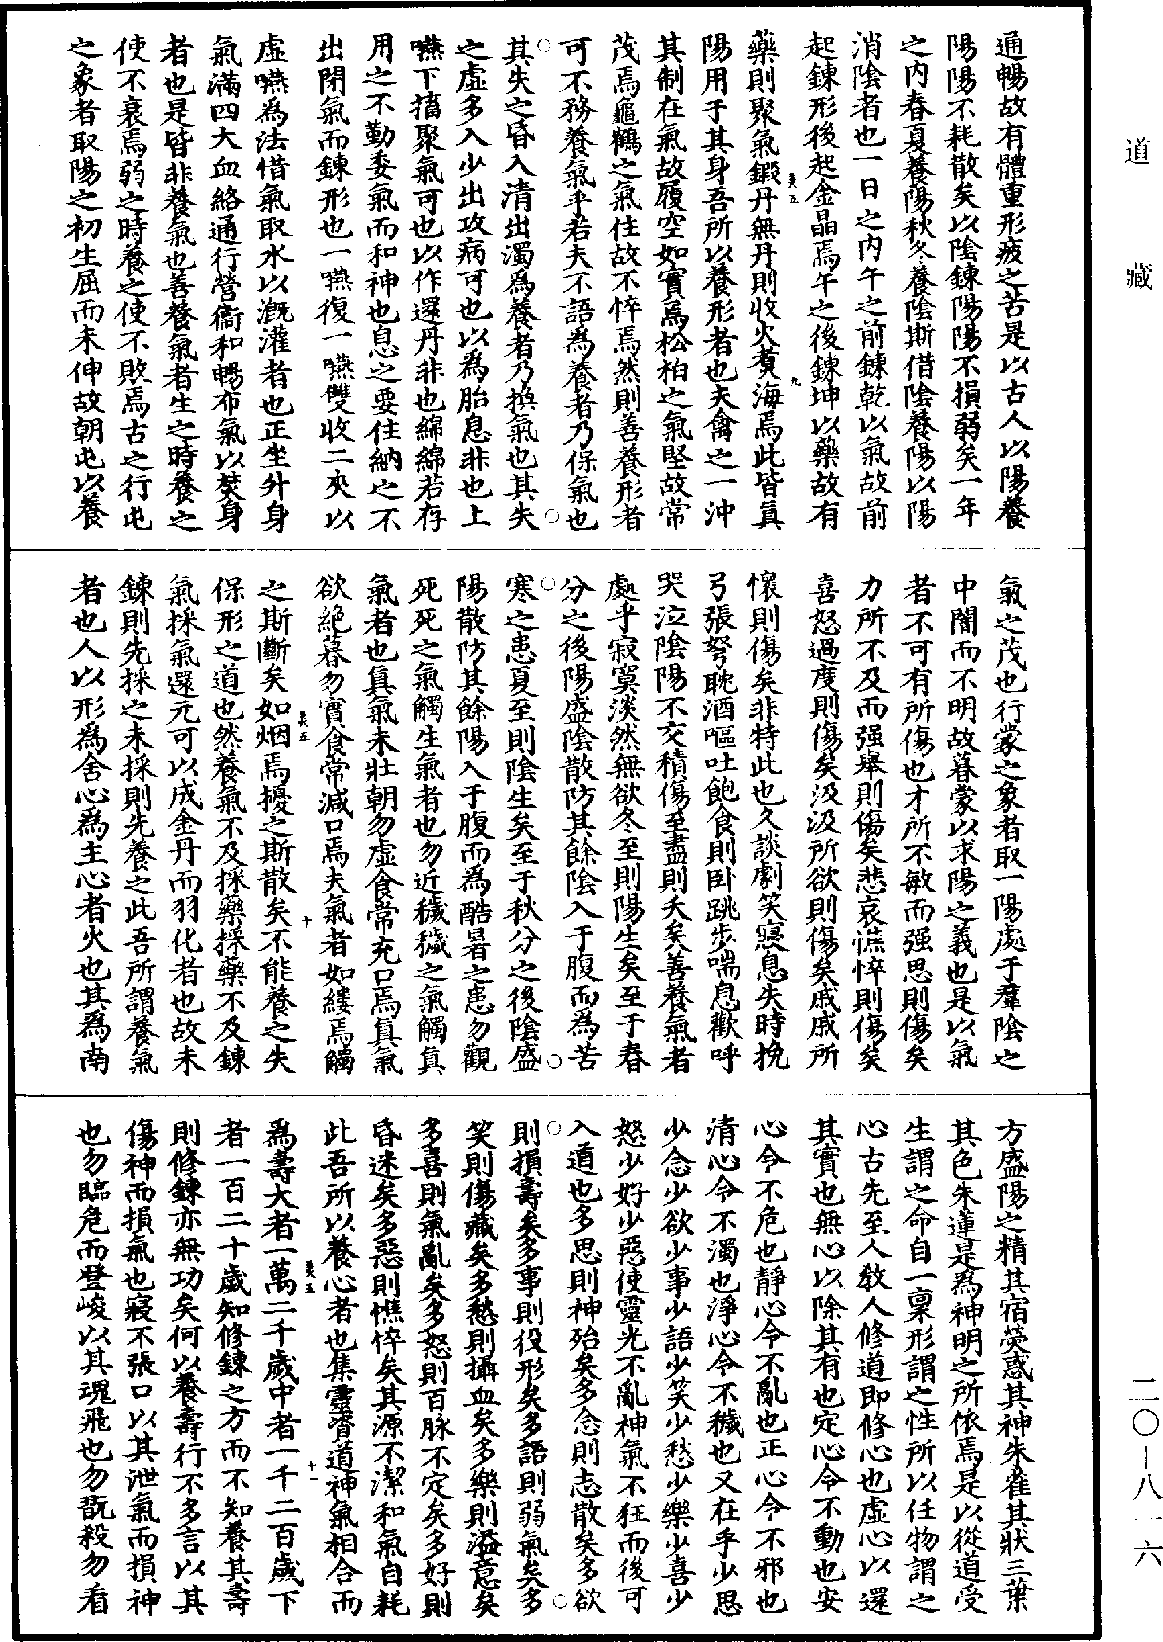 道藏
二〇—八一六
通暢故有體重形疲之苦是以古人以陽養
陽陽不耗散矣以陰鍊陽陽不損弱矣一年
之内春夏養陽秋冬養陰斯借陰養陽以陽
消陰者也一日之内午之前鍊乾以氣故前
起鍊形後起金晶焉午之後鍊坤以藥故有
藥則聚氣鍛丹無丹則收火煑海焉此皆眞
陽用于其身吾所以養形者也夫禽之一沖
其制在氣故履空如實焉松柏之氣堅故常
茂焉龜鶴之氣住故不悴焉然則善養形者
可不務養氣乎若夫不語爲養者乃保氣也
其失之昏入清出濁爲養者乃換氣也其失
之虛多入少出攻病可也以爲胎息非也上
嚥下搐聚氣可也以作還丹非也綿綿若存
用之不勤委氣而和神也息之要住納之不
出閉氣而鍊形也一嚥復一嚥雙收二夾以
虛嚥為法借氣取水以溉灌者也正坐升身
氣滿四大血絡通行營衞和暢布氣以焚身
者也是皆非養氣也善養氣者生之時養之
使不衰焉弱之時養之使不敗焉古之行屯
之象者取陽之初生屈而未伸故朝屯以養
氣之茂也行蒙之象者取一陽處于羣陰之
中闇而不明故暮蒙以求陽之義也是以氣
者不可有所傷也才所不敏而强思則傷矣
力所不及而强舉則傷矣悲哀憔悴則傷矣
喜怒過度則傷矣汲汲所欲則傷矣戚戚所
懷則傷矣非特此也久談劇笑寢息失時挽
弓張弩耽酒嘔吐飽食則卧跳步喘息歡呼
哭泣陰陽不交積傷至盡則夭矣善養氣者
處乎寂寞淡然無欲冬至則陽生矣至于春
分之後陽盛陰散防其餘陰入于腹而為苦
寒之患夏至則陰生矣至于秋分之後陰盛
陽散防其餘陽入于腹而為酷暑之患勿觀
死死之氣觸生氣者也勿近穢穢之氣觸真
氣者也真氣未壯朝勿虛食常充口焉真氣
欲絶暮勿實食常減口焉夫氣者如縷焉觸
之斯斷矣如烟焉擾之斯散矣不能養之失
保形之道也然養氣不及採藥採藥不及鍊
氣採氣還元可以成金丹而羽化者也故未
鍊則先採之未採則先養之此吾所謂養氣
者也人以形為舍心為主心者火也其為南
方盛陽之精其宿熒惑其神朱雀其狀三葉
其色朱蓮是為神明之所依焉是以從道受
生謂之命自一禀形謂之性所以任物謂之
心古先至人教人修道即修心也虛心以還
其實也無心以除其有也定心令不動也安
心令不危也靜心令不亂也正心令不邪也
清心令不濁也淨心令不穢也又在乎少思
少念少欲少事少語少笑少愁少樂少喜少
怒少好少惡使靈光不亂神氣不狂而後可
入道也多思則神殆矣多念則志散矣多欲
則損壽矣多事則役形矣多語則弱氣矣多
笑則傷藏矣多愁則攝血矣多樂則溢意矣
多喜則氣亂矣多怒則百脉不定矣多好則
昏迷矣多惡則憔悴矣其源不潔和氣自耗
此吾所以養心者也集靈資道神氣相合而
爲壽大者一萬二千歲中者一千二百歲下
者一百二十歲知修鍊之方而不知養其壽
則修鍊亦無功矣何以養壽行不多言以其
傷神而損氣也寢不張口以其泄氣而損神
也勿臨危而登峻以其魂飛也勿翫殺勿看